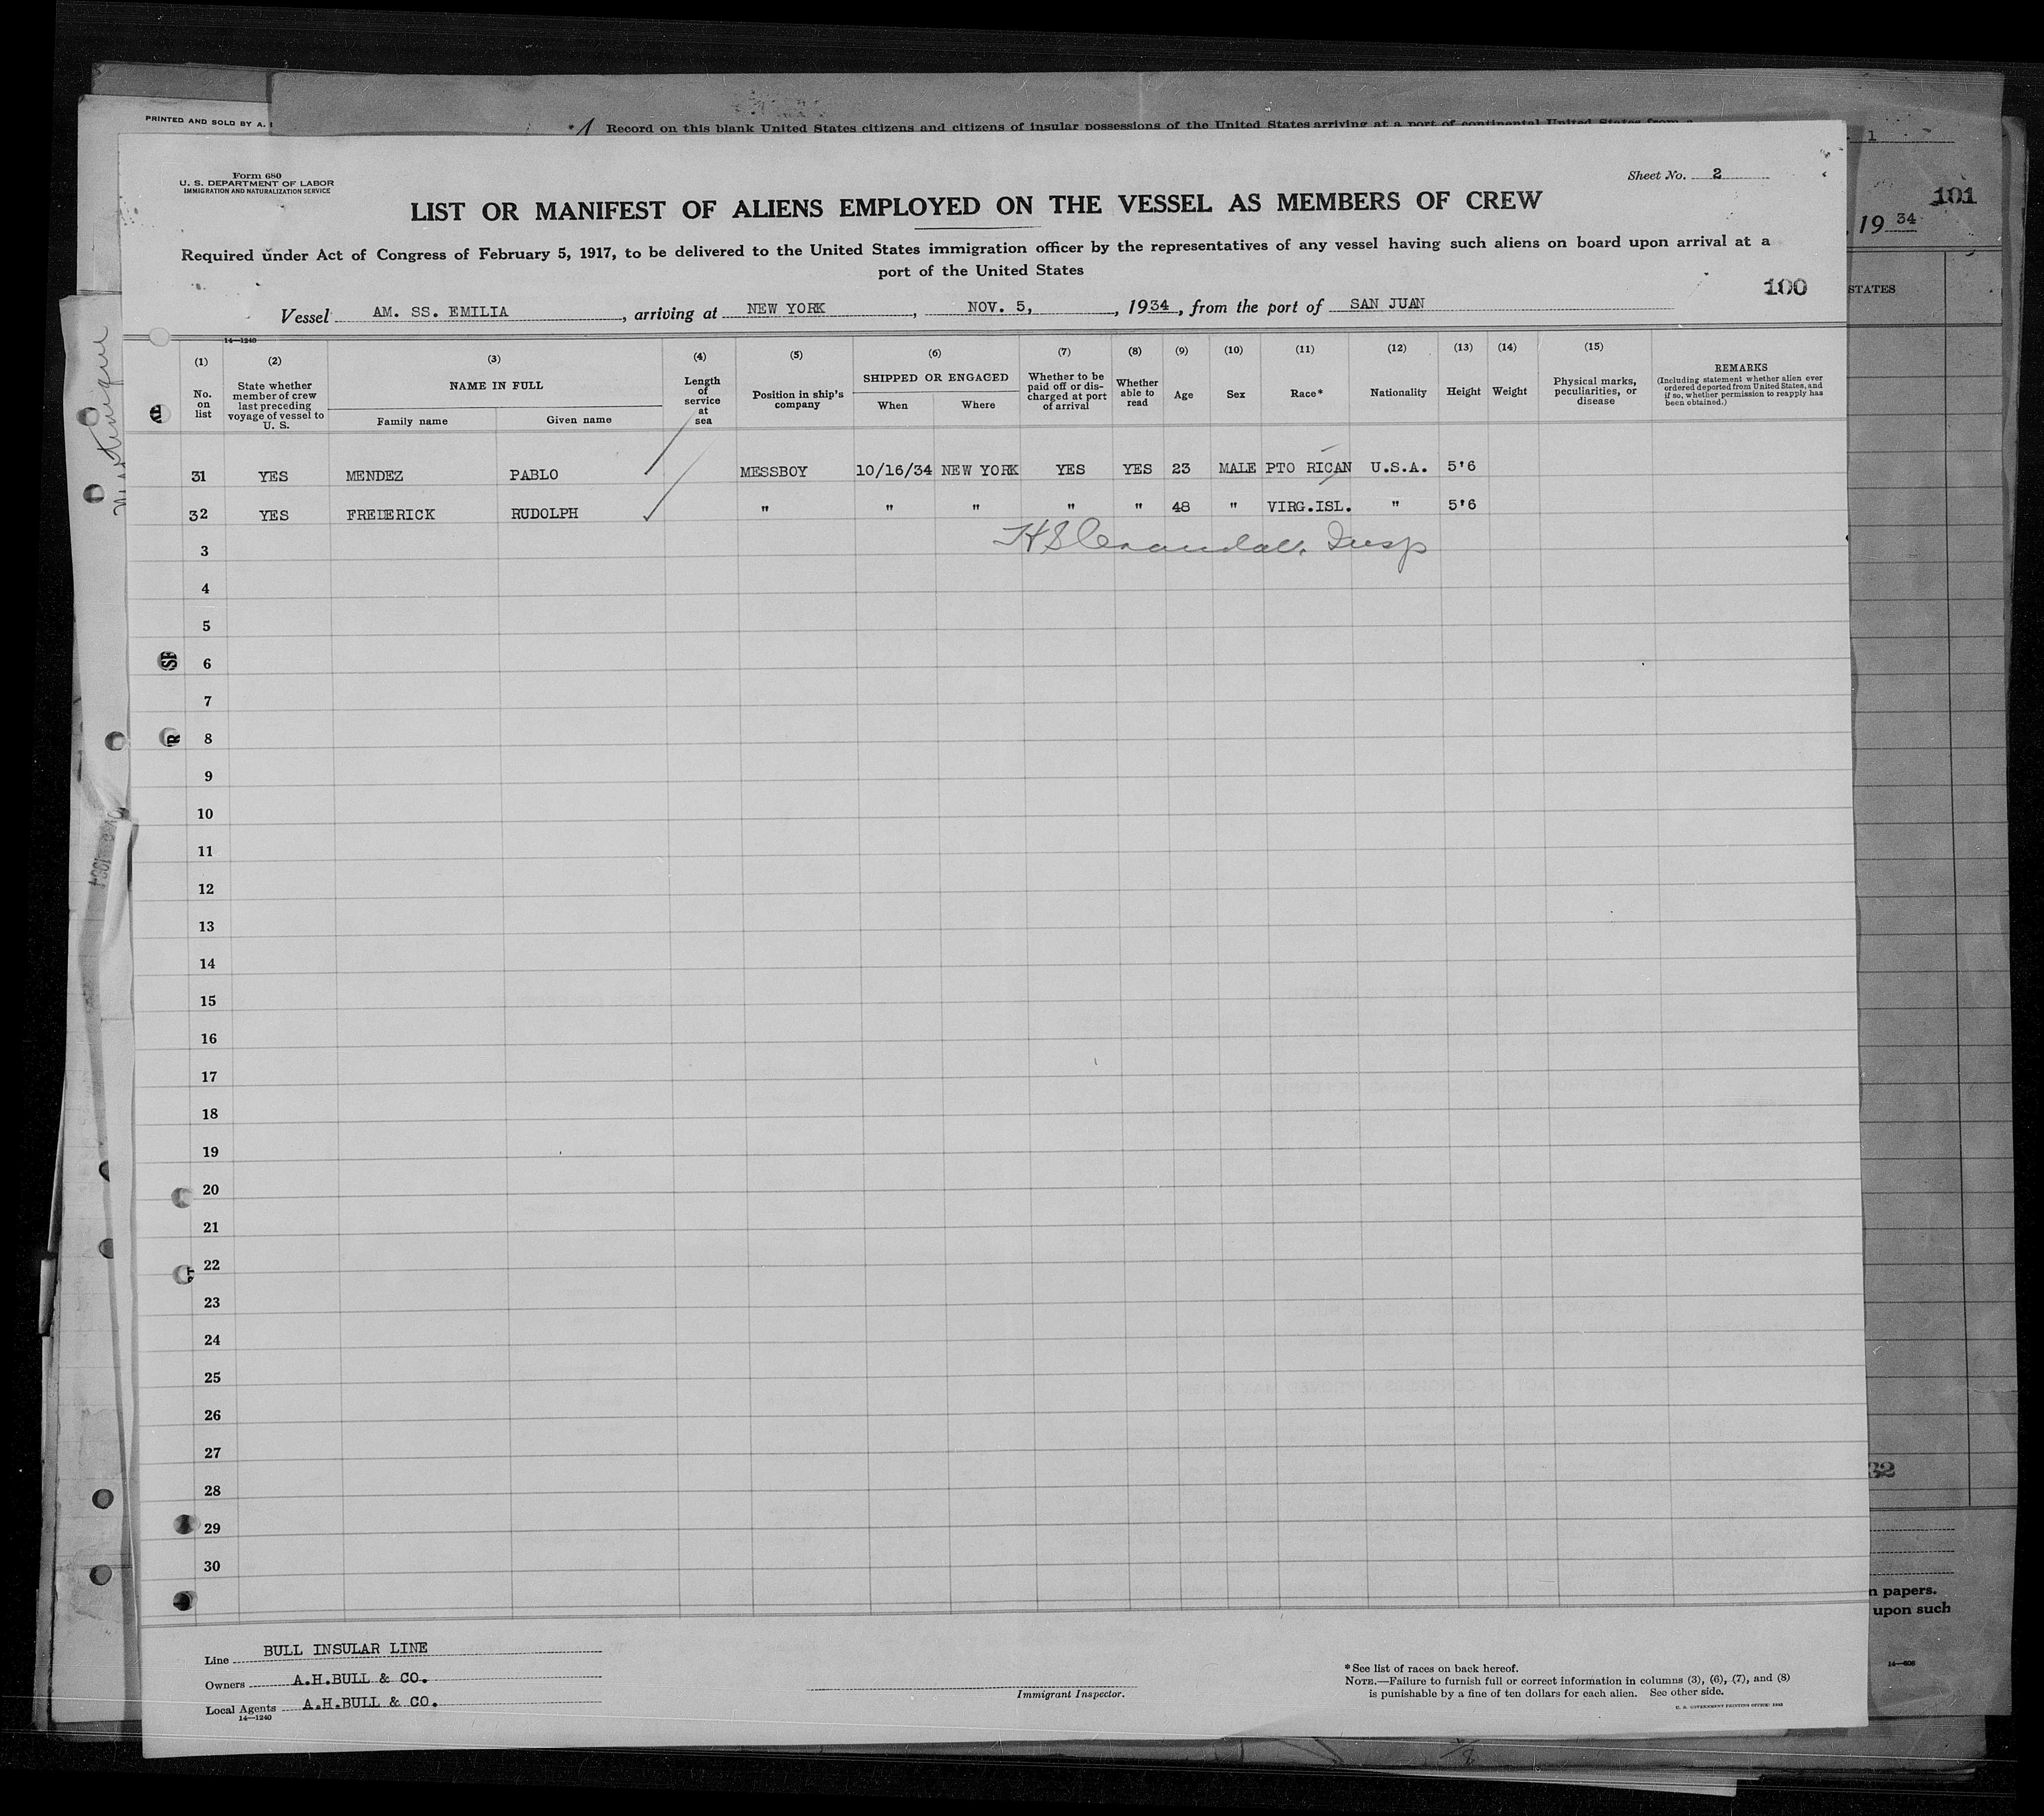 PRINTED AND SOLD BY A.
Record on this blank United States citizens and citizens of insular possessions of the United States arriving at a port of continental United States from a
1
101
, 19 34
STATES
Form 680
U. S. DEPARTMENT OF LABOR
IMMIGRATION AND NATURALIZATION SERVICE
Sheet No. 2
LIST OR MANIFEST OF ALIENS EMPLOYED ON THE VESSEL AS MEMBERS OF CREW
Required under Act of Congress of February 5, 1917, to be delivered to the United States immigration officer by the representatives of any vessel having such aliens on board upon arrival at a
port of the United States
100
Vessel AM. SS. EMILIA, arriving at NEW YORK, NOV. 5, , 1934, from the port of SAN JUAN
14—1240
(1) (2) (3) (4) (5) (6) (7) (8) (9) (10) (11) (12) (13) (14) (15)
No. on list
State whether member of crew last preceding voyage of vessel to U. S.
NAME IN FULL
Family name Given name
Length of service at sea
Position in ship's company
SHIPPED OR ENGAGED
When Where
Whether to be paid off or discharged at port of arrival
Whether able to read
Age
Sex
Race*
Nationality
Height
Weight
Physical marks, peculiarities, or disease
REMARKS
(Including statement whether alien ever ordered deported from United States, and if so, whether permission to reapply has been obtained.)
31 YES MENDEZ PABLO MESSBOY 10/16/34 NEW YORK YES YES 23 MALE PTO RICAN U.S.A. 5'6
32 YES FREDERICK RUDOLPH " " " " " 48 " VIRG.ISL. " 5'6
H S Crandall, Insp
3
4
5
6
7
8
9
10
11
12
13
14
15
16
17
18
19
20
21
22
23
24
25
26
27
28
29
30
32
n papers.
upon such
14—606
Line BULL INSULAR LINE
Owners A.H.BULL & CO.
Local Agents A.H.BULL & CO.
14—1240
Immigrant Inspector.
*See list of races on back hereof.
NOTE.—Failure to furnish full or correct information in columns (3), (6), (7), and (8)
is punishable by a fine of ten dollars for each alien. See other side.